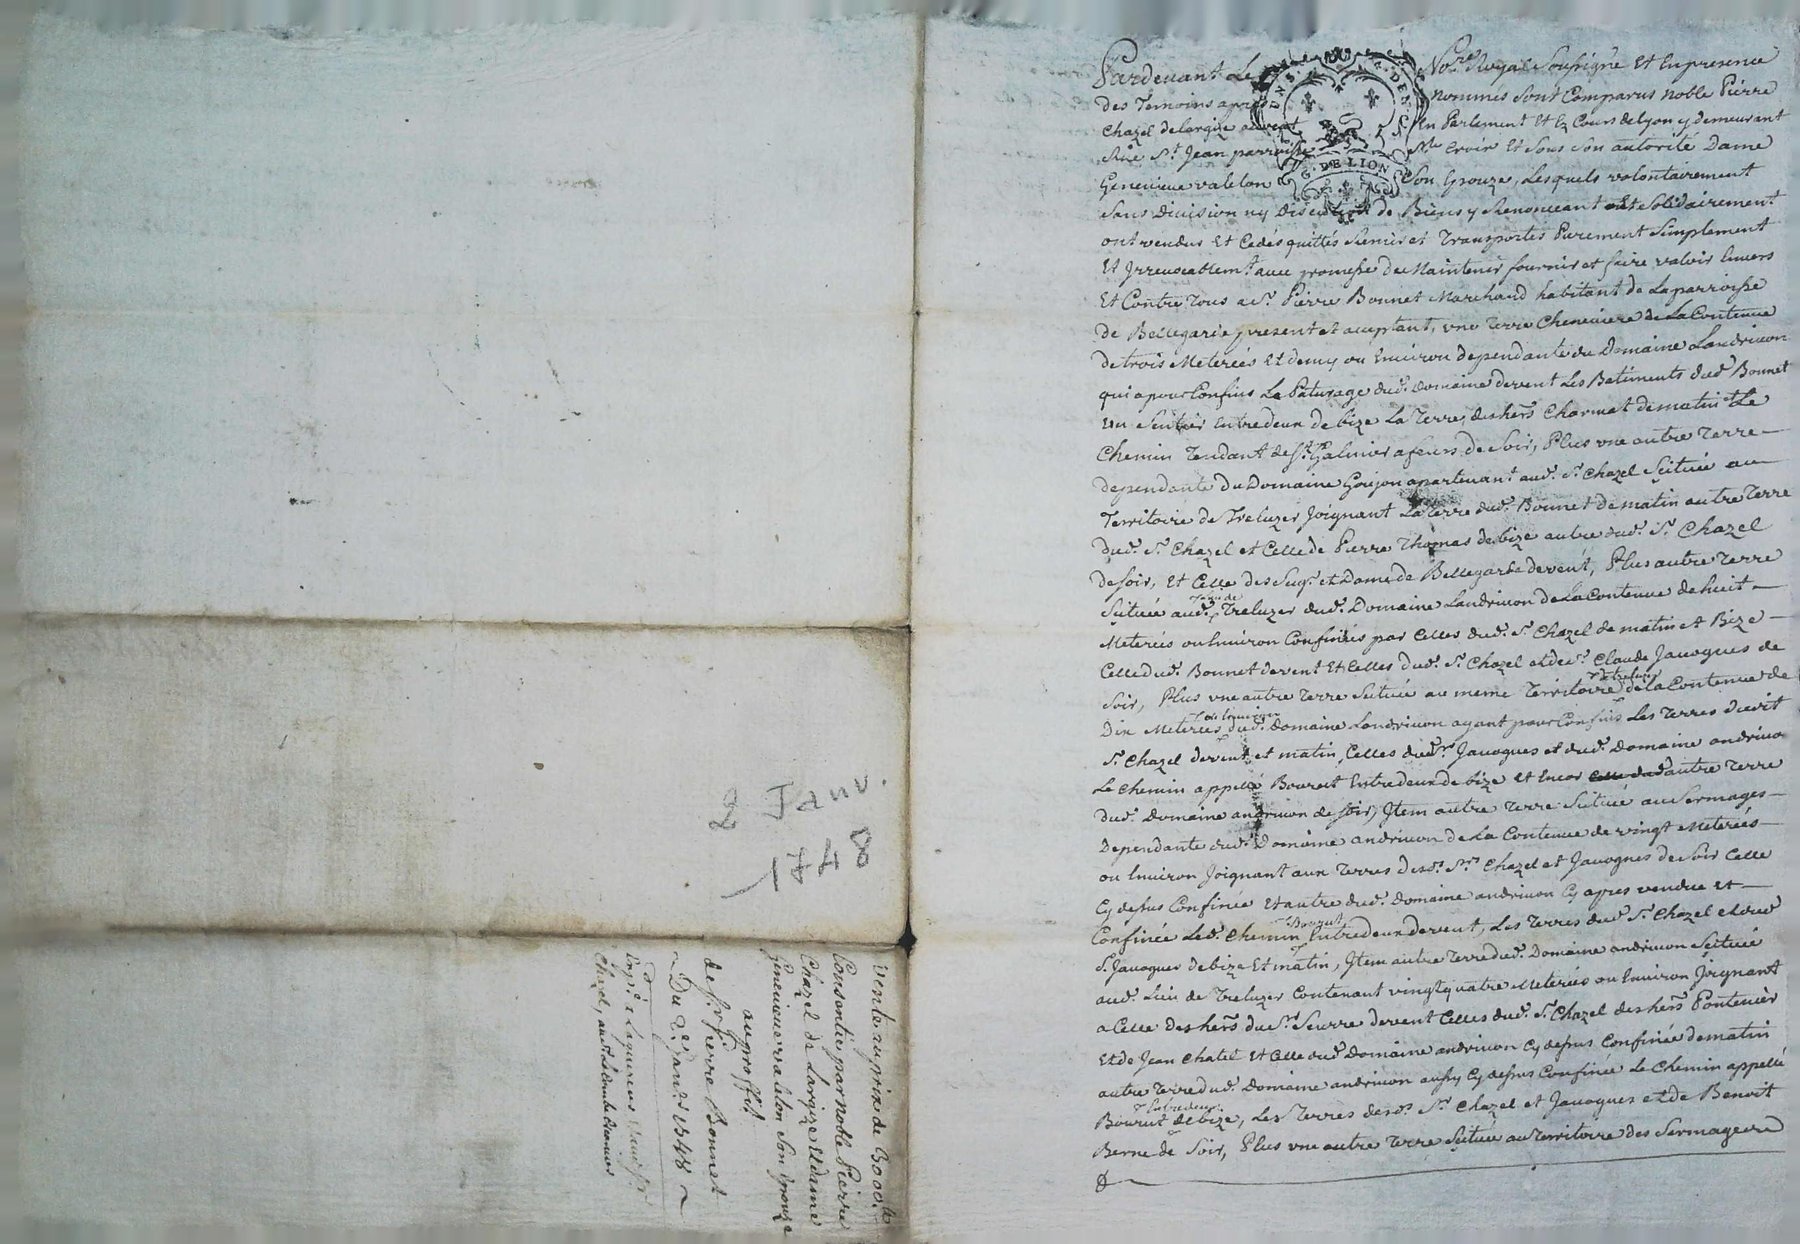 2 Janv.
1748
Vente au prix de 3000 lt
Consentie par noble Pierre
Chazel de Largize et dame
Genevieve valeton Son Epouze
au proffit
de Sr. Pierre Bonnet
Du 2e Janr. 1748
Chazel,
Pardevant Le No.re Royal Soussigné Et En presence
des Temoins apres nommés sont Comparus noble Pierre
Chazel delargize avocat En Parlement Et Cours de Lyon y demeurant
Rüe St. Jean parroisse Ste. Croix Et Sous Son autorité Dame
Genevieve valeton Son Epouze, Lesquels volontairement
Sans Division ny Discution de Biens y Renonceant et Solidairement
ont vendus Et Cedés quittés Remis et Transportés Purement Simplement
Et Irrevocablemt. avec promesse de Maintenir fournir et faire valoir Envers
Et Contre Tous a Sr. Pierre Bonnet Marchand habitant de La parroisse
de Bellegarde present et acceptant, une Terre Cheneviere de La Contenue
de trois Meterées Et demy ou Environ dependante du Domaine Landrivon
qui a pour Confins Le Paturage dud. Domaine devent Les Batiments dud Bonnet
un Sentier Entredeux de bize La Terre des hers. Charmet de matin Le
Chemin Tendant de St. Galmier a feurs de Soir, Plus une autre Terre
dependante Du Domaine Goujon apartenant aud. Sr. Chazel Scituée au
Territoire de Treluzer Joignant La Terre dud. Bonnet de matin autre Terre
dud. Sr. Chazel et Celle de Pierre Thomas de bize autre dud. Sr. Chazel
de Soir, Et Celle des Seigr. et Dame de Bellegarde devent, Plus autre Terre
Scituée aud. Treluzer dud. Domaine Landrivon de La Contenue de huit
Meterées ou Environ Confinées par Celles dud. Sr. Chazel de matin et Bize
Celle dud. Bonnet devent Et Celles dud. Sr. Chazel et de Sr. Claude Javogues de
Soir, Plus une autre Terre Scituée au meme Territoire de Treluzer de la Contenue de
Dix Meterées ou Environ dud. Domaine Landrivon ayant pour Confins Les Terres dudit
Sr. Chazel devent et matin, Celles dud. Sr. Javogues et dud. Domaine andrivon
Le Chemin appellé Bourut Entredeux de bize Et Encor autre Terre
dud. Domaine andrivon de Soir, Item autre Terre Scituée au Sermages
Dependante dud. Domaine andrivon de La Contenue de vingt Meterées
ou Environ Joignant aux Terres desd. Srs. Chazel et Javogues de Soir Celle
Cy dessus Confinée Et autre dud. Domaine andrivon Cy apres vendue et
Confinée Led. Chemin Bourut Entredeux devent, Les Terres dud Sr. Chazel et dud
Sr. Javogues de bize Et matin, Item autre Terre dud. Domaine andrivon Scituée
aud. Lieu de Treluzer Contenant vingt quatre Meterées ou Environ Joignant
a Celle des hers. du Sr. Seurre devent Celles dud. Sr. Chazel des hers. Pontenier
Et de Jean Chatel Et Celle dud. Domaine andrivon Cy dessus Confinée de matin
autre Terre dud. Domaine andrivon aussy Cy dessus Confinée Le Chemin appellé
Bourut Entredeux de bize, Les Terres desd. Srs. Chazel et Javogues et de Benoit
Berne de Soir, Plus une autre Terre Scituée au Territoire des Sermages
G. DE LION